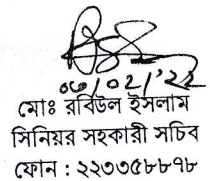 মোঃ রবিউল ইসলাম
সিনিয়র সহকারী সচিব
ফোন : ২২৩৩৫৮৮৭৮